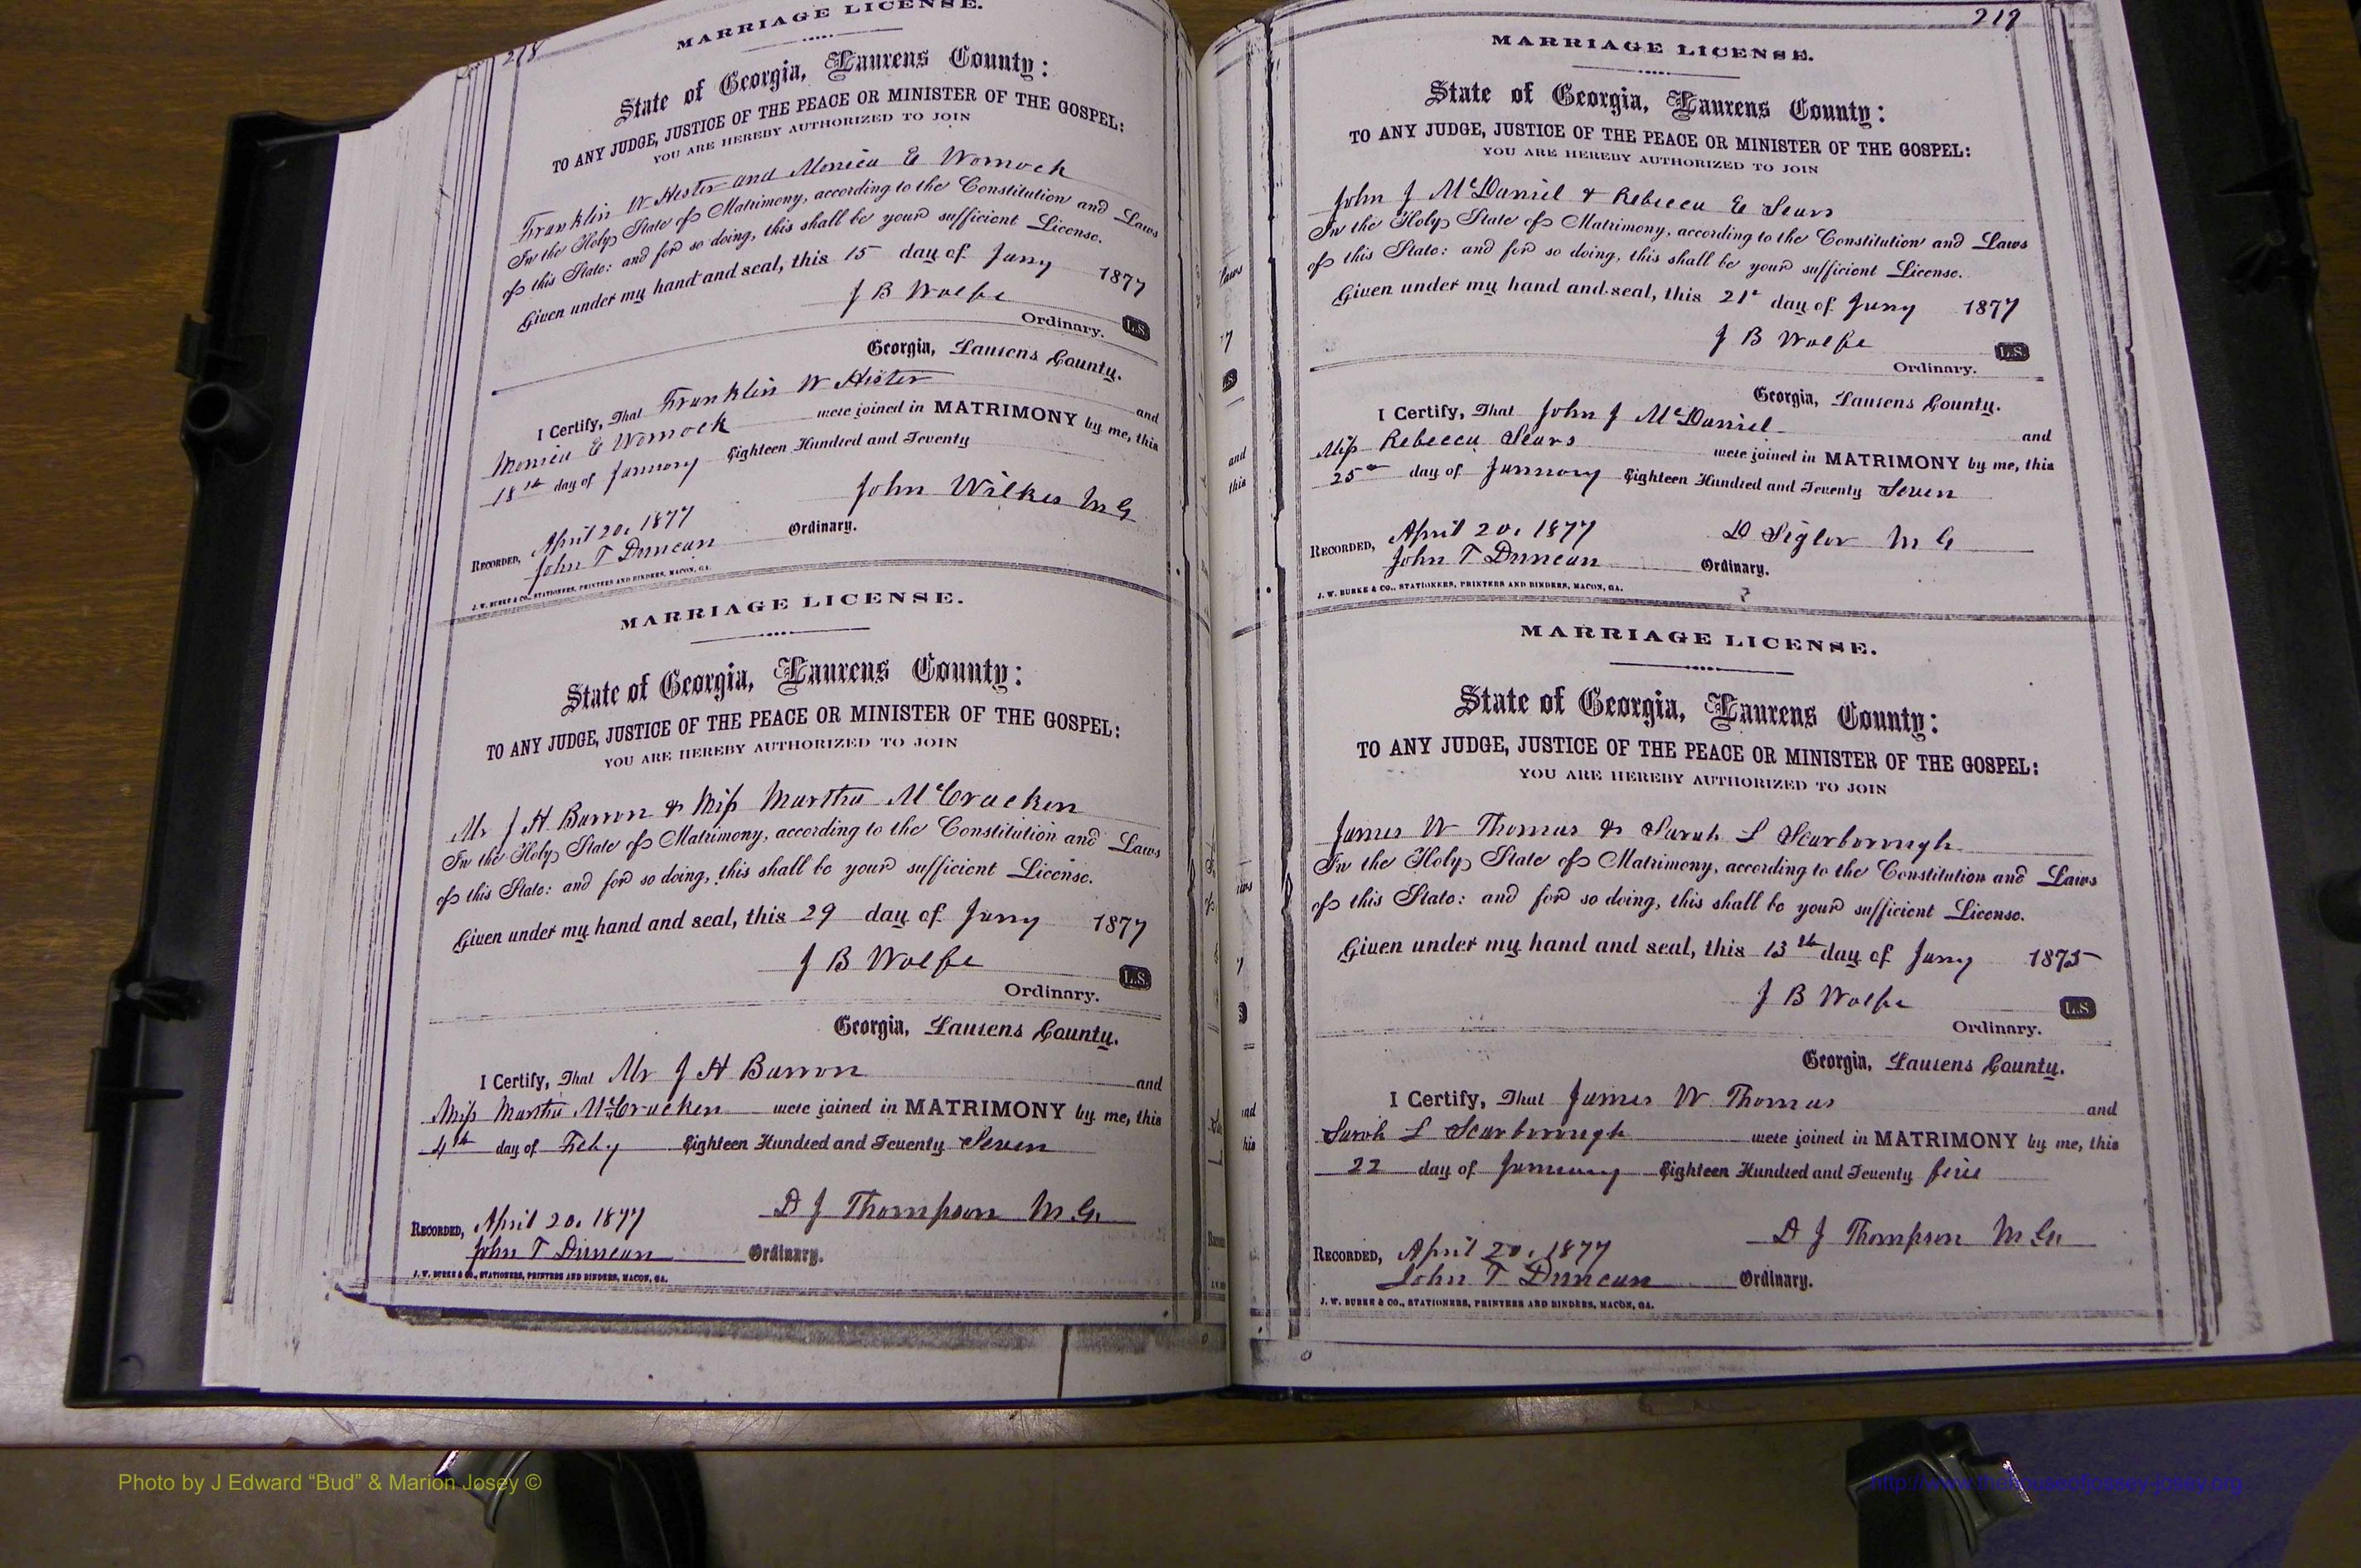 218
MARRIAGE LICENSE.
State of Georgia, Laurens County:
TO ANY JUDGE, JUSTICE OF THE PEACE OR MINISTER OF THE GOSPEL:
YOU ARE HEREBY AUTHORIZED TO JOIN
Franklin W Hester and Monica E Womock
In the Holy State of Matrimony, according to the Constitution and Laws
of this State: and for so doing, this shall be your sufficient License.
Given under my hand and seal, this 15 day of Jany 1877
J B Wolfe
Ordinary. L.S.
Georgia, Laurens County.
I Certify, That Franklin W Hester and
Monica E Womock were joined in MATRIMONY by me, this
18th day of January Eighteen Hundred and Seventy
John Wilkes M G
RECORDED, April 20, 1877
John T Duncan Ordinary.
J. W. BURKE & CO., STATIONERS, PRINTERS AND BINDERS, MACON, GA.
MARRIAGE LICENSE.
State of Georgia, Laurens County:
TO ANY JUDGE, JUSTICE OF THE PEACE OR MINISTER OF THE GOSPEL:
YOU ARE HEREBY AUTHORIZED TO JOIN
Mr J H Barron & Miss Martha McCracken
In the Holy State of Matrimony, according to the Constitution and Laws
of this State: and for so doing, this shall be your sufficient License.
Given under my hand and seal, this 29 day of Jany 1877
J B Wolfe
L.S.
Ordinary.
Georgia, Laurens County.
I Certify, That Mr J H Barron and
Miss Martha McCracken were joined in MATRIMONY by me, this
4th day of Feby Eighteen Hundred and Seventy Seven
D J Thompson M G.
RECORDED, April 20, 1877
John T Duncan Ordinary.
J. W. BURKE & CO., STATIONERS, PRINTERS AND BINDERS, MACON, GA.
219
MARRIAGE LICENSE.
State of Georgia, Laurens County:
TO ANY JUDGE, JUSTICE OF THE PEACE OR MINISTER OF THE GOSPEL:
YOU ARE HEREBY AUTHORIZED TO JOIN
John J McDaniel & Rebecca E Sears
In the Holy State of Matrimony, according to the Constitution and Laws
of this State: and for so doing, this shall be your sufficient License.
Given under my hand and seal, this 21st day of Jany 1877
J B Wolfe
L.S.
Ordinary.
Georgia, Laurens County.
I Certify, That John J McDaniel and
Miss Rebecca Sears were joined in MATRIMONY by me, this
25th day of January Eighteen Hundred and Seventy Seven
D Sigler M G
RECORDED, April 20, 1877
John T Duncan Ordinary.
J. W. BURKE & CO., STATIONERS, PRINTERS AND BINDERS, MACON, GA.
?
MARRIAGE LICENSE.
State of Georgia, Laurens County:
TO ANY JUDGE, JUSTICE OF THE PEACE OR MINISTER OF THE GOSPEL:
YOU ARE HEREBY AUTHORIZED TO JOIN
James W Thomas & Sarah L Scarborough
In the Holy State of Matrimony, according to the Constitution and Laws
of this State: and for so doing, this shall be your sufficient License.
Given under my hand and seal, this 13th day of Jany 1875
J B Wolfe
L.S.
Ordinary.
Georgia, Laurens County.
I Certify, That James W Thomas and
Sarah L Scarborough were joined in MATRIMONY by me, this
22 day of January Eighteen Hundred and Seventy five
D J Thompson M G.
RECORDED, April 20, 1877
John T Duncan Ordinary.
J. W. BURKE & CO., STATIONERS, PRINTERS AND BINDERS, MACON, GA.
Photo by J Edward “Bud” & Marion Josey ©
http://www.thehouseofjossey-josey.org